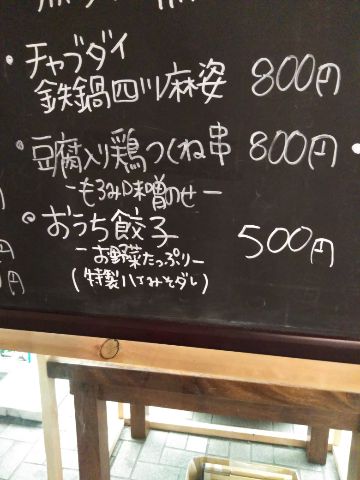 ・チャブダイ
鉄鍋四川麻姿 800円
・豆腐入り鶏つくね串 800円
ーもろみ味噌のせー
・おうち餃子 500円
ーお野菜たっぷりー
(特製八丁みそダレ)